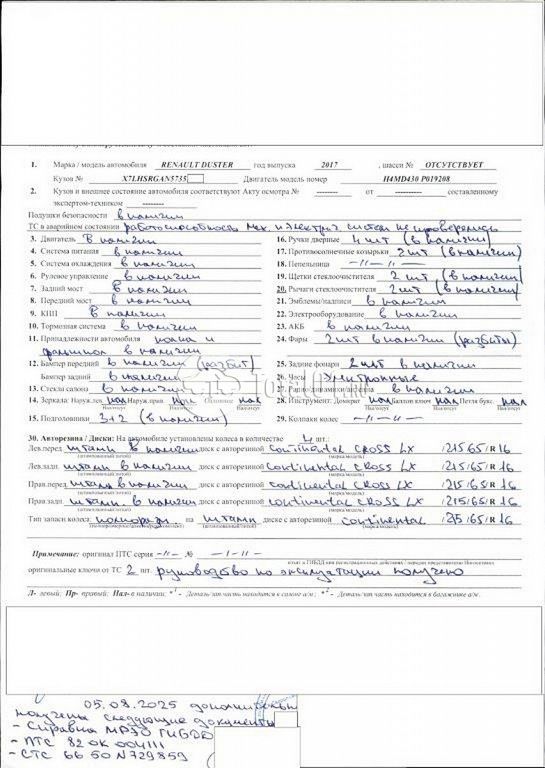 1. Марка / модель автомобиля RENAULT DUSTER год выпуска 2017 , шасси № ОТСУТСТВУЕТ
Кузов № X7LHSRGAN5735 Двигатель модель номер H4MD430 P019208
2. Кузов и внешнее состояние автомобиля соответствуют Акту осмотра № -------- от -------- составленному
экспертом-техником --------
Подушки безопасности в наличии
ТС в аварийном состоянии работоспособность мех. и электрич. систем не проверялись
3. Двигатель в наличии
4. Система питания в наличии
5. Система охлаждения в наличии
6. Рулевое управление в наличии
7. Задний мост в наличии
8. Передний мост в наличии
9. КПП в наличии
10. Тормозная система в наличии
11. Принадлежности автомобиля
в наличии
12. Бампер передний в наличии (разбит)
Бампер задний в наличии
13. Стекла салона в наличии
14. Зеркала: Наруж.лев нал Наруж.прав при Основное нал
Нал/отсут Нал/отсут Нал/отсут
15. Подголовники 3+2 (в наличии)
16. Ручки дверные 4 шт (в наличии)
17. Противосолнечные козырьки 2 шт (в наличии)
18. Пепельница -11-11-
19. Щетки стеклоочистителя 2 шт (в наличии)
20. Рычаги стеклоочистителя 2 шт (в наличии)
21. Эмблемы/надписи в наличии
22. Электрооборудование в наличии
23. АКБ в наличии
24. Фары 2 шт в наличии (разбиты)
25. Задние фонари 2 шт в наличии
26. Часы электронные
27. Радио/динамики/антенна в наличии
28. Инструмент: Домкрат нал Баллон ключ нал Петля букс. нал
Нал/отсут Нал/отсут Нал/отсут
29. Колпаки колес -11-11-
30. Авторезина / Диски: На автомобиле установлены колеса в количестве 4 шт.:
Лев.перед штамп в наличии диск с авторезиной continental CROSS LX /215/65/R 16
(штампованный/литой) (марка/модель)
Лев.задн. штамп в наличии диск с авторезиной continental CROSS LX /215/65/R 16
(штампованный/литой) (марка/модель)
Прав.перед штамп в наличии диск с авторезиной continental CROSS LX /215/65/R 16
(штампованный/литой) (марка/модель)
Прав.задн. штамп. в наличии диск с авторезиной continental CROSS LX /215/65/R 16
(штампованный/литой) (марка/модель)
Тип запасн колеса: полнораз на штамп диске с авторезиной continental /215/65/R 16
(марка/модель)
Примечание: оригинал ПТС серия -11- № -11-11-
оригинальные ключи от ТС 2 шт. руководство по эксплуатации получено
Л- левый; Пр- правый; Нал- в наличии; *1- Деталь/зап часть находится в салоне а/м; *2- Деталь/зап часть находится в багажнике а/м.
05.08.2025 дополнительн
получены следующие документы
- Справка МРЭО ГИБДД
- ПТС 82 ОК 004111
- СТС 66 50 N729859